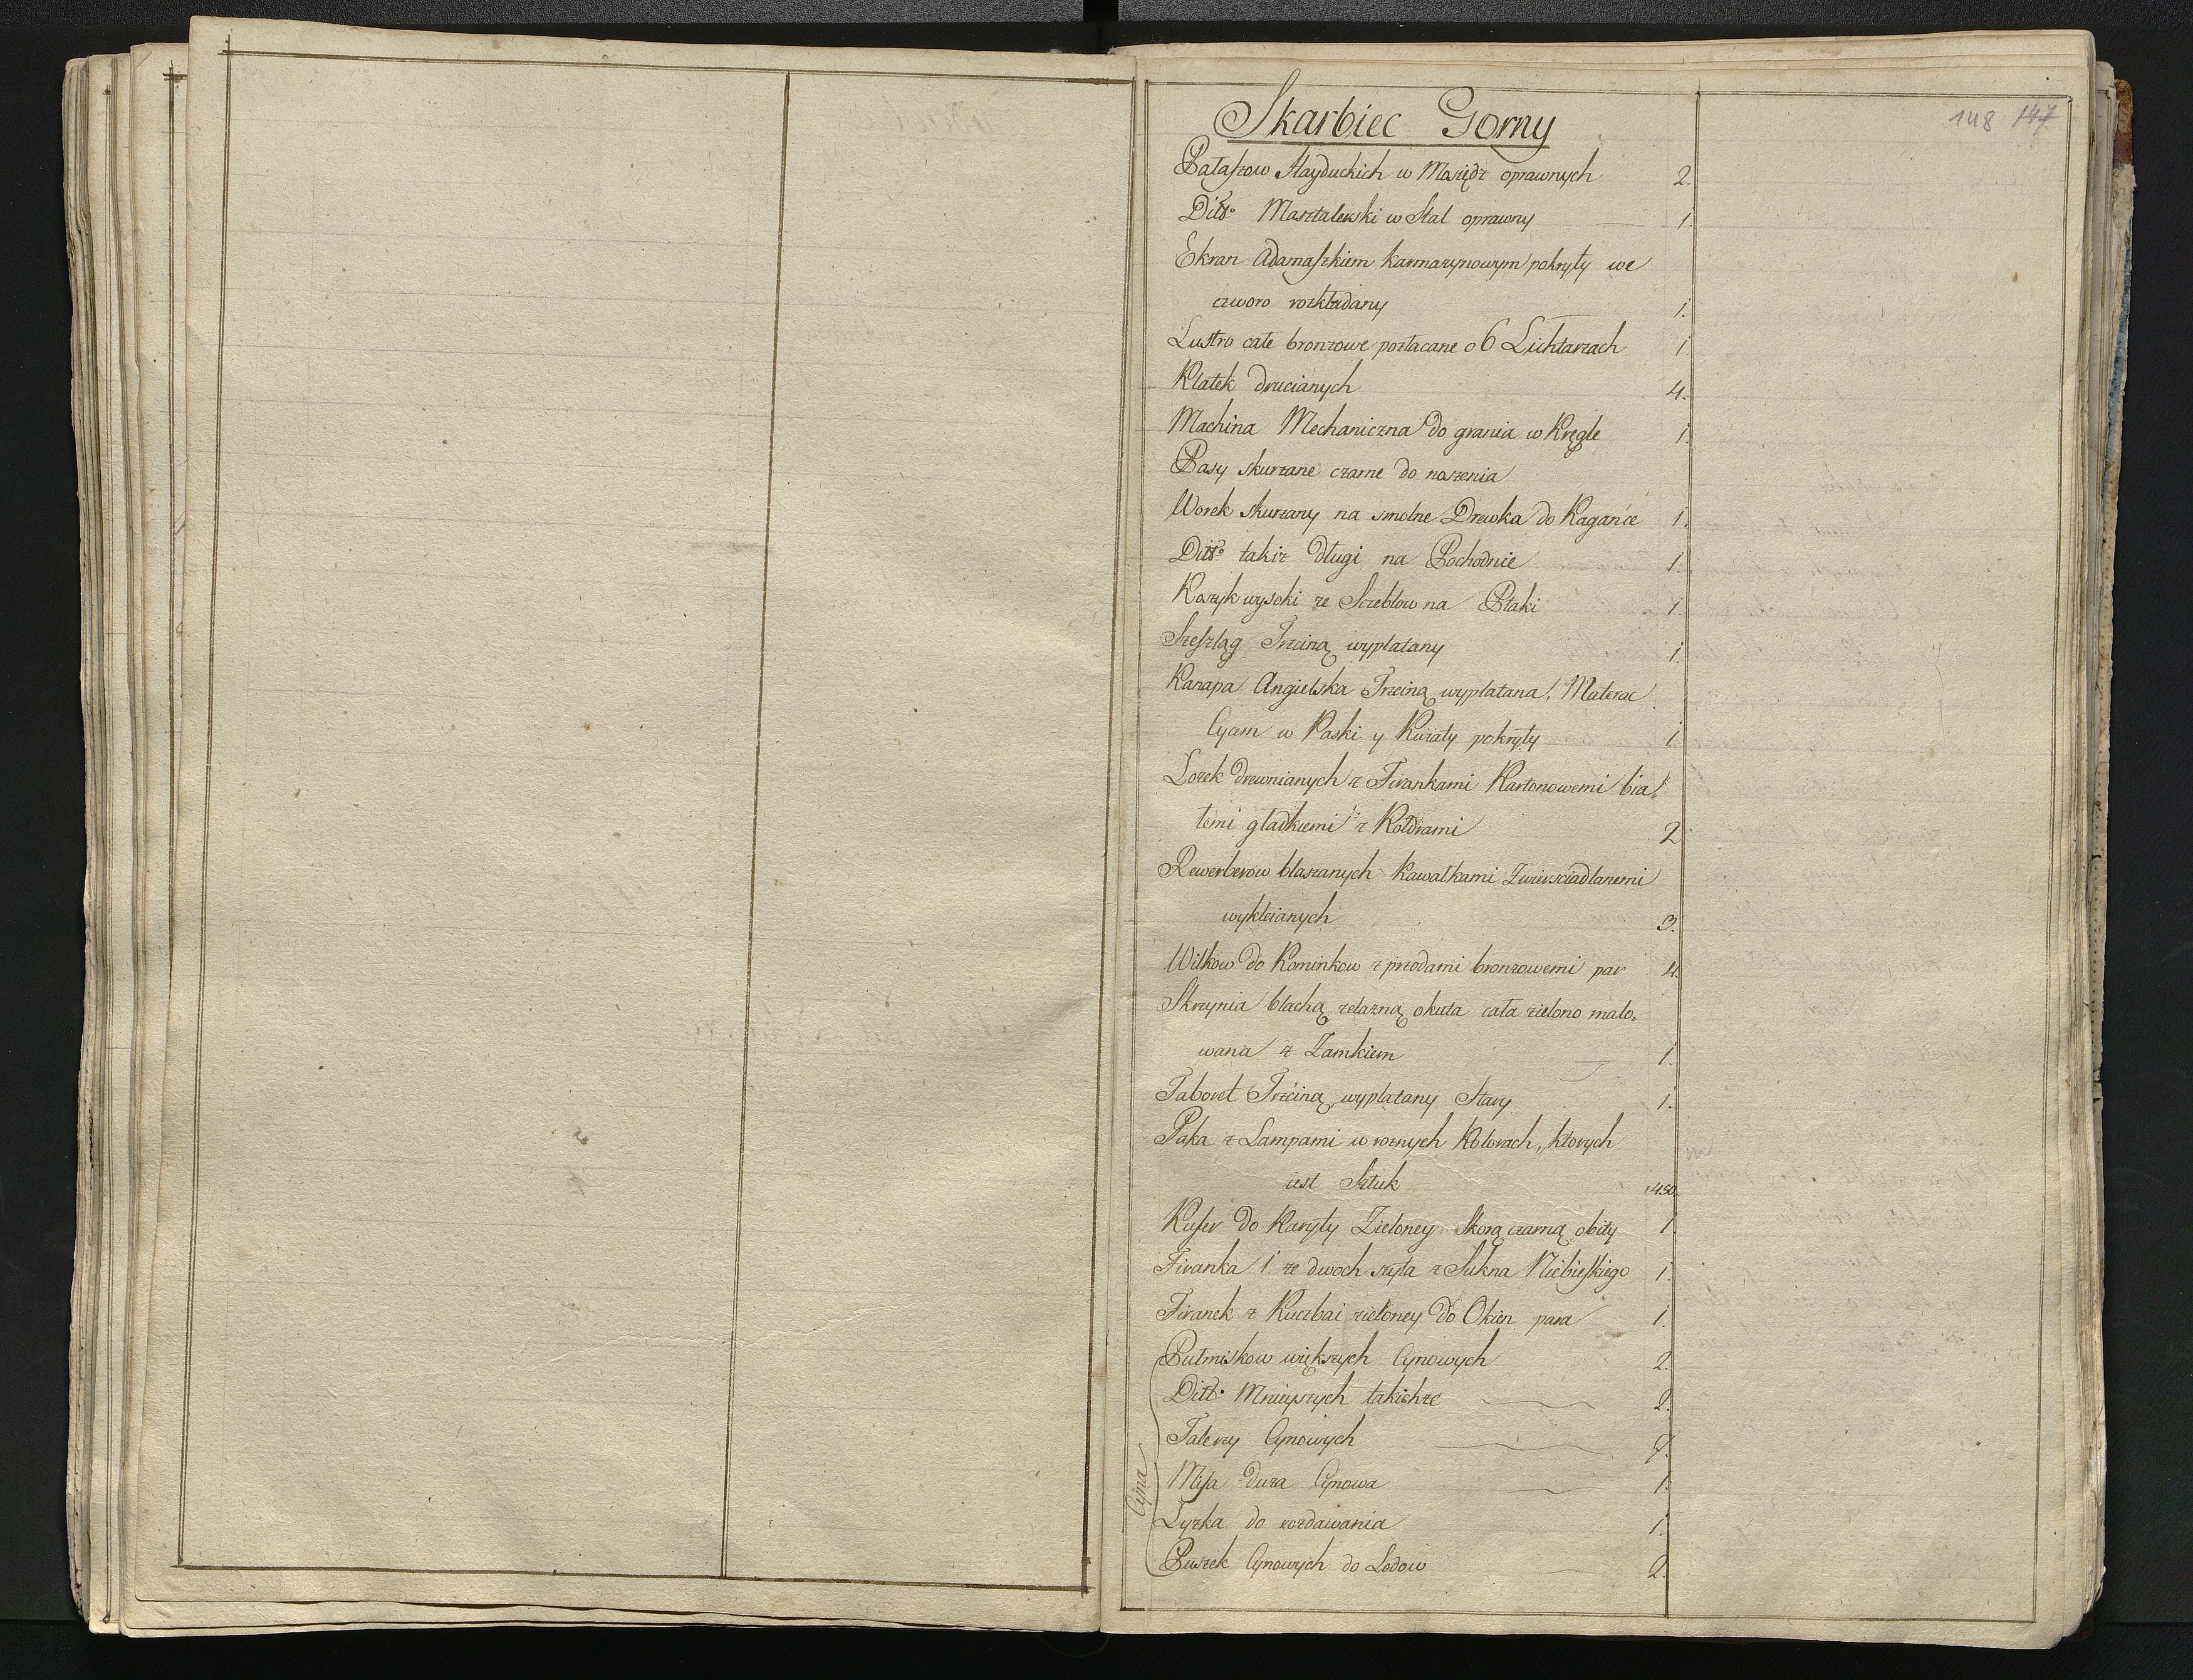 148 147
Skarbiec Gorny
Pałaszow Hayduckich w Mosiądz oprawnych 2.
Ditto Masztalerski w Stal oprawny 1.
Ekran Adamaszkiem karmazynowym pokryty we
czworo rozkładany 1.
Lustro całe bronzowe pozłacane o 6 Lichtarzach 1
Klatek drucianych 4.
Machina Mechaniczna do grania w Kręgle 1.
Pasy skurzane czarne do noszenia
Worek skurzany na smolne Drewka do Kagańce 1.
Ditto takiż długi na Pochodnie 1.
Koszyk wysoki ze Szeblow na Ptaki 1.
Szeszląg Trzciną wyplatany 1.
Kanapa Angielska Trzciną wyplatana, Materac
Cycem w Paski y Kwiaty pokryty 1
Lozek drewnianych z Firankami Kartonowemi bia„
łemi gładkiemi i z Kołdrami 2
Rewerberow blaszanych kawałkami Zwierściadlanemi
wykleianych 3.
Wilkow do Kominkow z przodami bronzowemi par 4.
Skrzynia blachą żelazną okuta cała zielono malo„
wana z Zamkiem 1.
Taboret Trzciną wyplatany Stary 1.
Paka z Lampami w roznych Kolorach, ktorych
iest Sztuk 1450.
Kufer do Karyty Zieloney Skorą czarną obity 1.
Firanka 1. ze dwoch szyta z Sukna Niebieskiego 1.
Firanek z Kuczbai zieloney do Okien para 1.
Cyna
Pułmiskow większych Cynowych 2.
Ditto Mnieyszych takichże 2.
Talerzy Cynowych 7.
Misa duza Cynowa 1.
Lyzka do rozdawania 1.
Puszek Cynowych do Lodow 2.